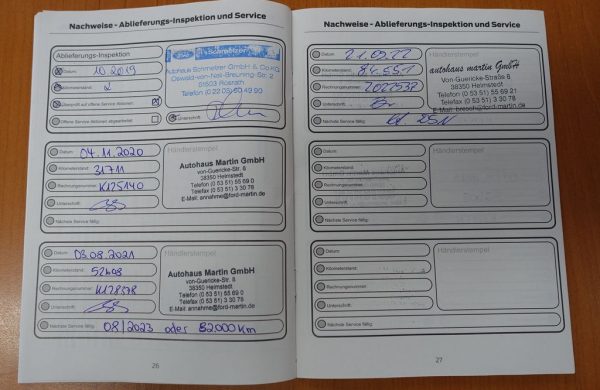 Nachweise - Ablieferungs-Inspektion und Service
Ablieferungs-Inspektion
Datum: 10.2019
Kilometerstand: 2
Überprüft auf offene Service Aktionen:
Offene Service Aktionen abgearbeitet:
Unterschrift:
Ford Schmelzer
Autohaus Schmelzer GmbH & Co.KG
Oswald-von-Nell-Breuning-Str. 2
51503 Rösrath
Telefon (0 22 05) 80 49 90
Datum: 04.11.2020
Kilometerstand: 31711
Rechnungsnummer: K125140
Unterschrift:
Nächste Service fällig:
Händlerstempel
Autohaus Martin GmbH
von-Guericke-Str. 8
38350 Helmstedt
Telefon (0 53 51) 55 69 0
Telefax (0 53 51) 3 30 78
E-Mail: annahme@ford-martin.de
Datum: 03.08.2021
Kilometerstand: 52608
Rechnungsnummer: K128578
Unterschrift:
Nächste Service fällig: 08/2023 oder 82000 Km
Händlerstempel
Autohaus Martin GmbH
von-Guericke-Str. 8
38350 Helmstedt
Telefon (0 53 51) 55 69 0
Telefax (0 53 51) 3 30 78
E-Mail: annahme@ford-martin.de
26
Nachweise - Ablieferungs-Inspektion und Service
Datum: 21.09.22
Kilometerstand: 84.551
Rechnungsnummer: 2022532
Unterschrift:
Nächste Service fällig:
Händlerstempel
autohaus martin GmbH
Von-Guericke-Straße 8
38350 Helmstedt
Telefon (0 53 51) 55 69 21
Telefax (0 53 51) 3 30 78
Datum:
Kilometerstand:
Rechnungsnummer:
Unterschrift:
Nächste Service fällig:
Händlerstempel
Datum:
Kilometerstand:
Rechnungsnummer:
Unterschrift:
Nächste Service fällig:
Händlerstempel
27